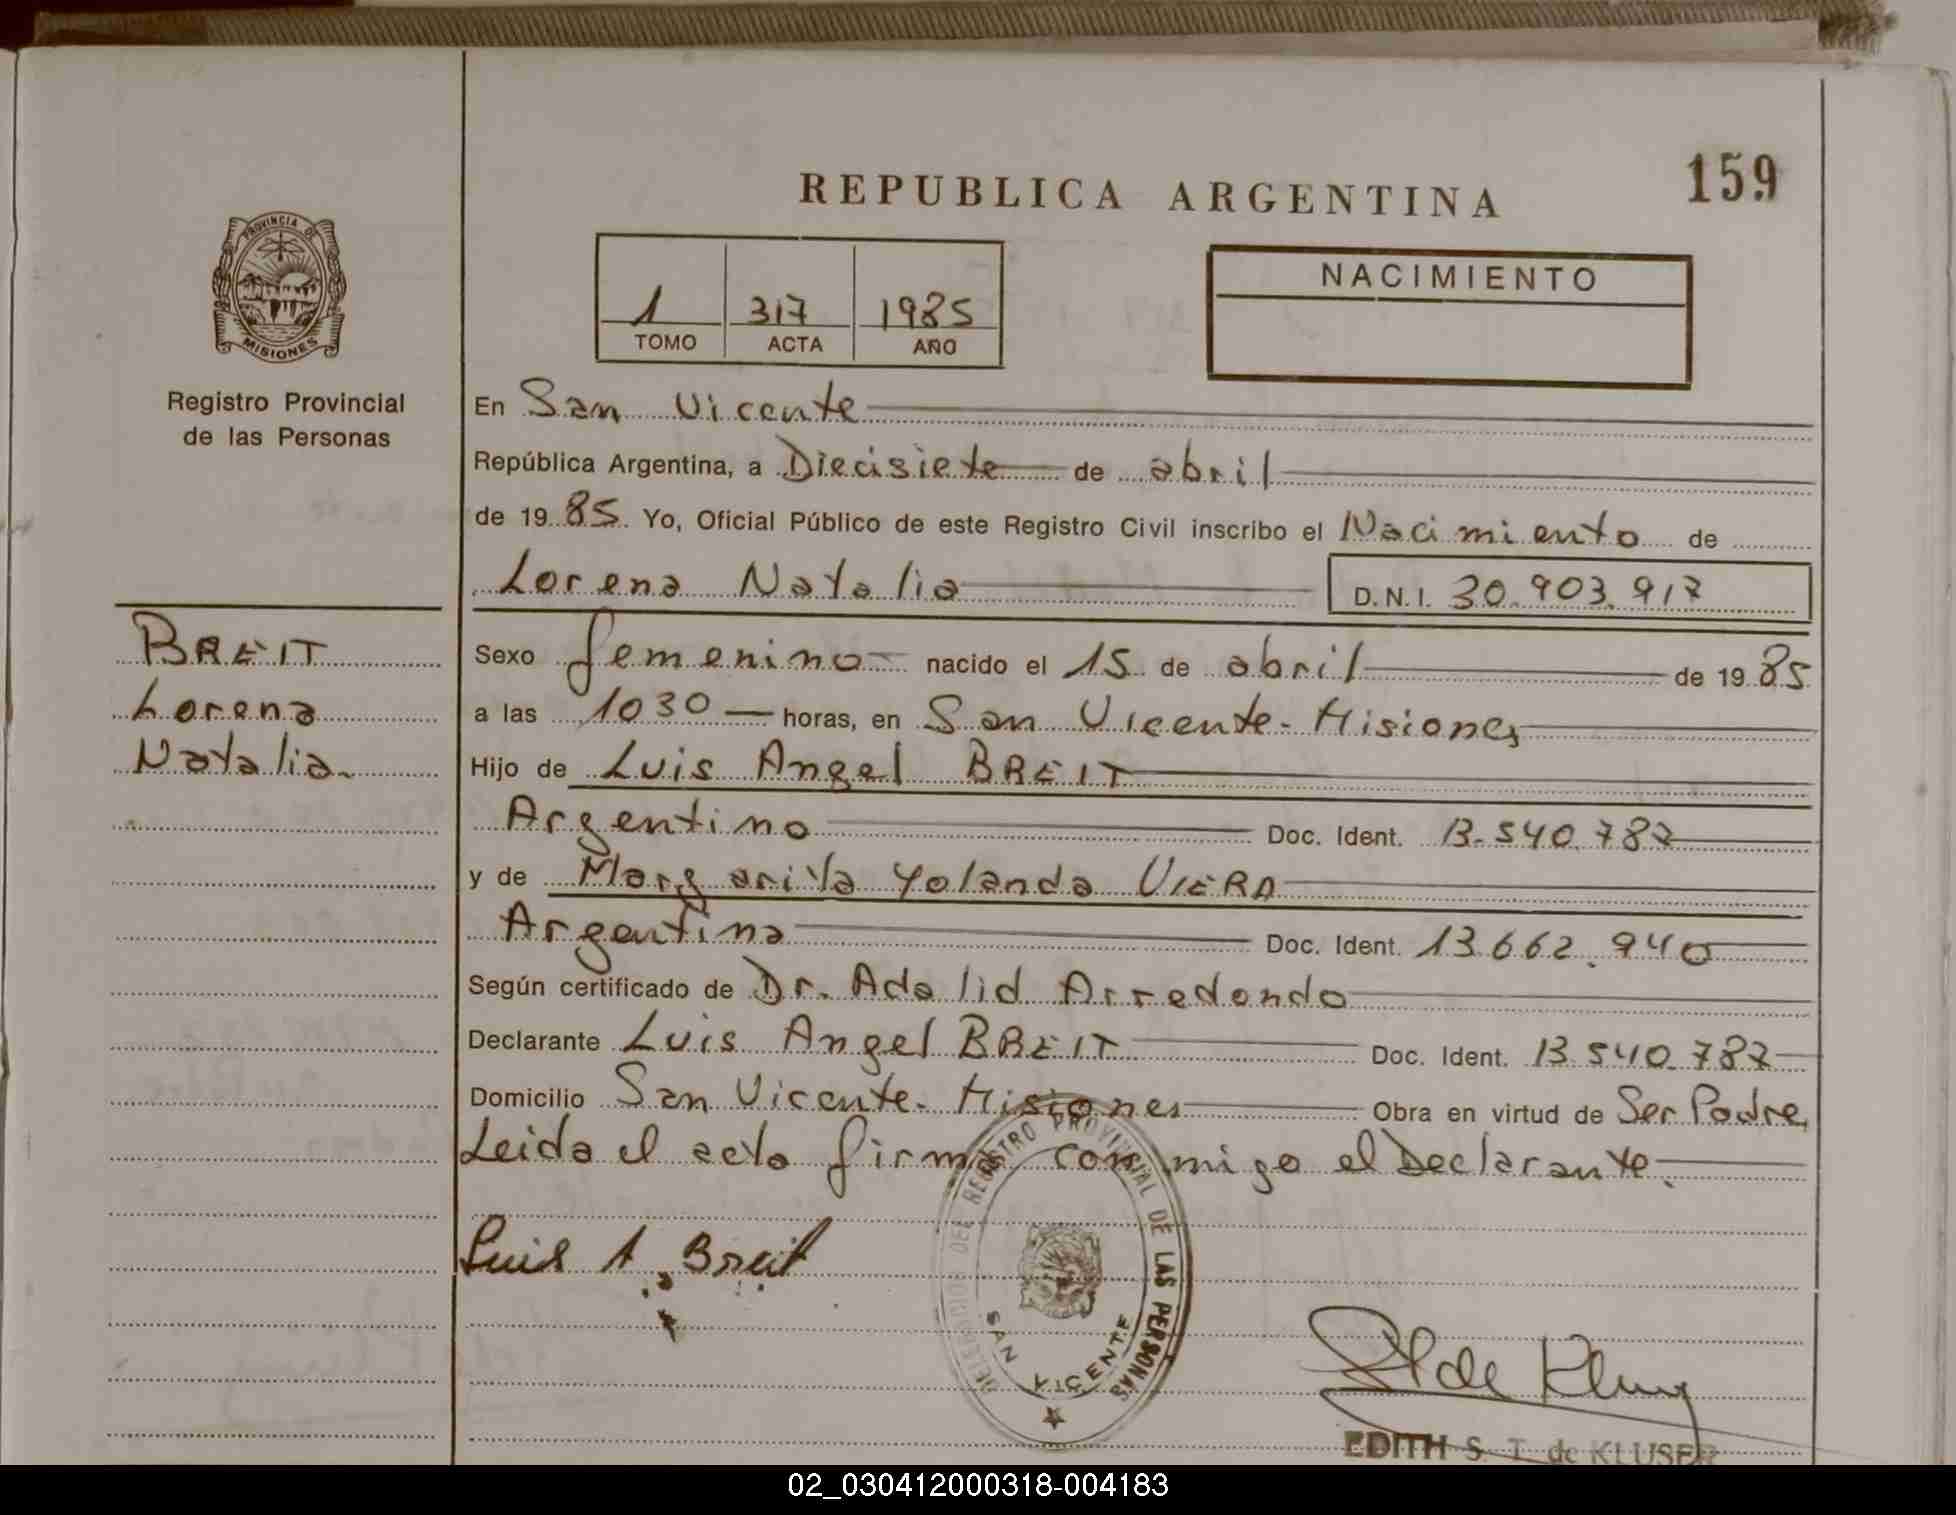 REPUBLICA ARGENTINA
159
PROVINCIA DE
MISIONES
Registro Provincial
de las Personas
1 317 1985
TOMO ACTA AÑO
NACIMIENTO
En San Vicente
República Argentina, a Diecisiete de abril
de 1985 Yo, Oficial Público de este Registro Civil inscribo el Nacimiento de
Lorena Natalia D.N.I. 30.903.917
BREIT
Lorena
Natalia.
Sexo femenino nacido el 15 de abril de 1985
a las 1030 horas, en San Vicente - Misiones
Hijo de Luis Angel BREIT
Argentino Doc. Ident. 13.540.787
y de Margarita Yolanda VIERA
Argentina Doc. Ident. 13.662.940
Según certificado de Dr. Adalid Arredondo
Declarante Luis Angel BREIT Doc. Ident. 13.540.787
Domicilio San Vicente - Misiones Obra en virtud de Ser Padre
Leida el acta firma conmigo el Declarante.
Luis A. Breit
DELEGACION DEL REGISTRO PROVINCIAL DE LAS PERSONAS
SAN VICENTE
EDITH S. T. de KLUSER
02_030412000318-004183